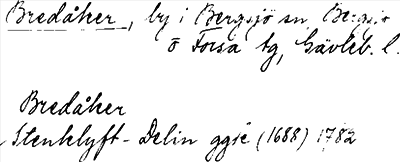 Bredåker, by i Bergsjö sn, Bergsjö
o Forsa tg, Gävleb. l.
Bredåker
Stenklyft-Delin ggse (1688) 1782